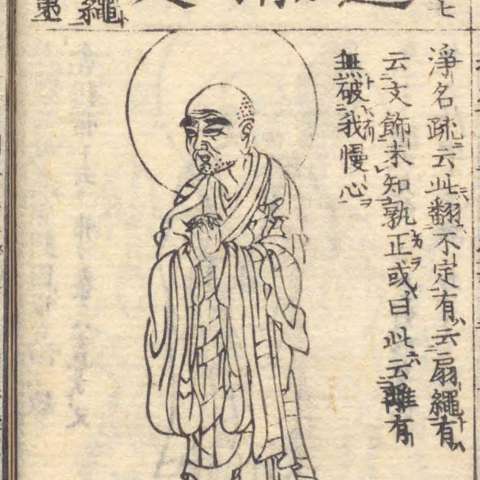 淨名疏云此翻不定有云扇繩有
云文飾未知孰正或曰此云離有
無破我慢心